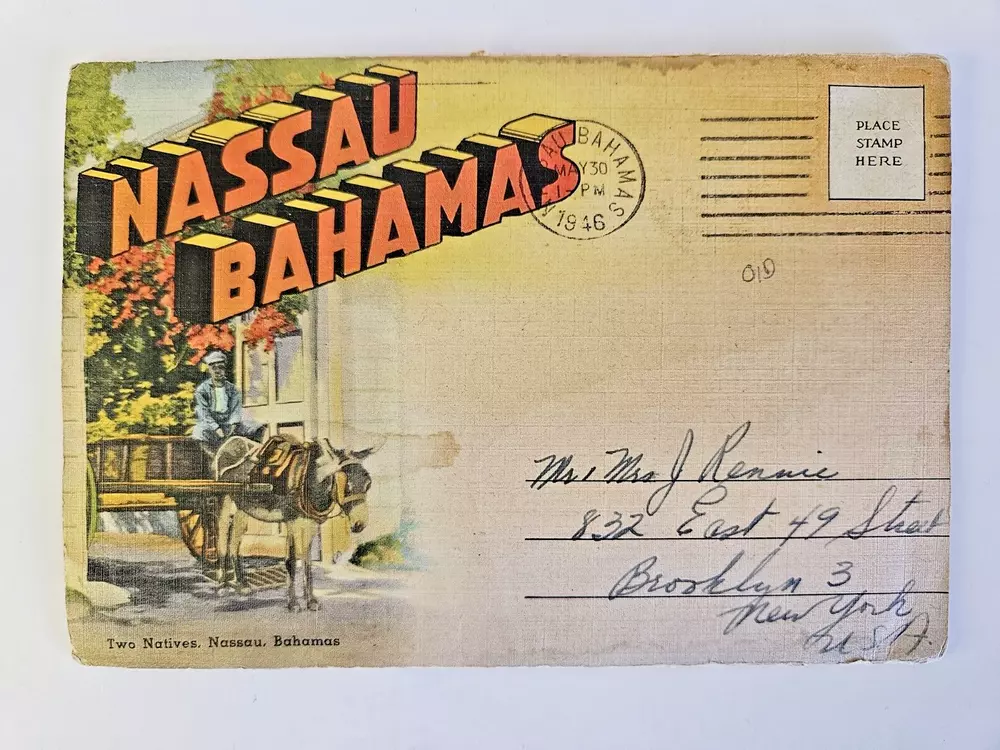 NASSAU
BAHAMAS
BAHAMAS
MAY 30
PM
1946
PLACE
STAMP
HERE
OlD
Mr, Mrs J Rennie
832 East 49 Street
Brooklyn 3
New York
USA.
Two Natives, Nassau, Bahamas